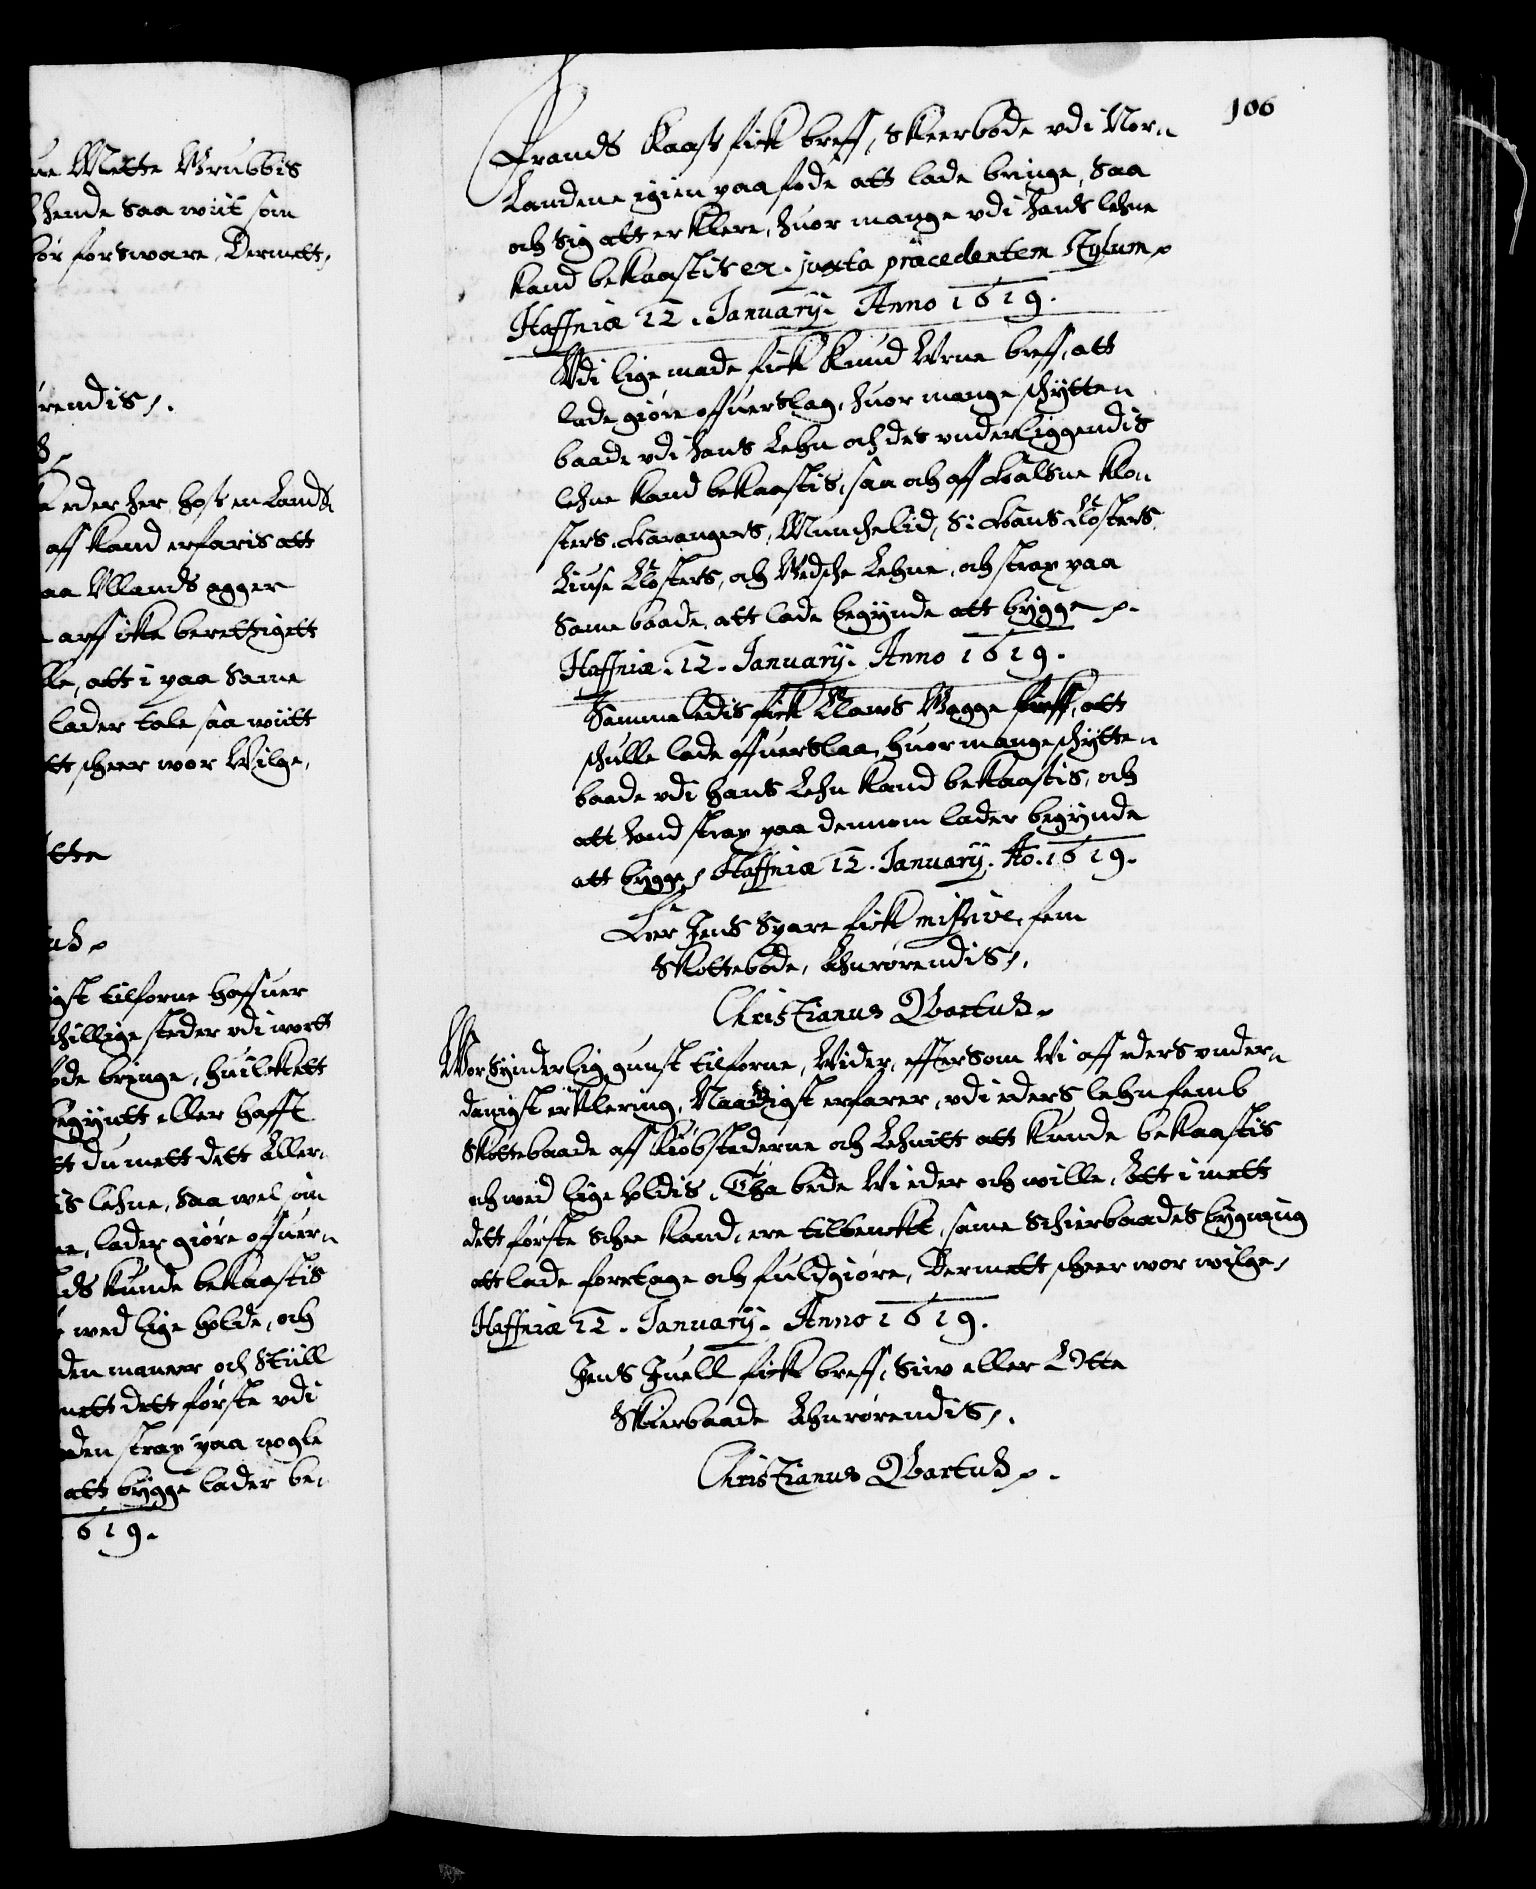 ue Mette Grubbis
hende saa wiit som
bør forsware, Dermett,
rendis,.
eder her hos en Lands
aff kand erfaris att
aa Ullands agger
arff icke berettigett
lle, att i paa same
lader tale saa wiitt
tt scheer wor Wilge,
igst tilforne haffuer
schillige steder udi wortt
ode bringe, huilckett
begyntt eller hafft
tt du mett dett Aller„
is lehne, saa wel om
ne, lader giøre ofuer„
lds kunde bekaastis
wed lige holde, och
den maneer och Skiell
mett dett første udi
den strax paa nogle
att bygge lader be„
1619.
106
Frands Kaass fick breff, Skeerbode udi Nor„
Landene igien paa fode att lade bringe, saa
och sig att erklere, huor mange udi hans lehne
kand bekaastis ex. juxta præcedentem Stylum,
Haffniæ 12. January. Anno 1619.
Udi lige made fick Knud Urne breff, att
lade giøre ofuerslag, huor mange schytten
baade udi hans Lehn och des underliggendis
lehne kand bekaastis, saa och aff Halsne Klo„
sters, Hardangers, Munchelid, S: Hans Klosters,
Liuse Klosters, och Wedsche Lehne, och strax paa
same baade, att lade begynde att bygge,.
Haffniæ. 12. January. Anno 1619.
Sammeledis fick Claus Wagge breff, att
schulle lade offuerslaa, huor mange schytten
baade udi hans Lehn kand bekaastis, och
att hand strax paa dennom lader begynde
att bygge, Haffniæ 12. January. Ao. 1619.
Her Jens Spare fick missive, fem
Skøttebode, Ahnrørendis,.
Christianus Qvartus,
Wor Synderlig gunst tilforne, Wider, effter som Wi aff eders under„
danigst erklering, Naadigst erfarer, udi eders lehn femb
Skøttebaade aff Kiøbstederne och Lehnitt att kunde bekaastis
och wed lige holdis, Tha bede Wi eder och wille, Att i mett
dett første schee kand, ere tilbenckt, same Schierbaades bygning
att lade foretage och fuldgiøre, Dermett scheer wor wilge,
Haffniæ 12. January. Anno 1619.
Jens Juell fick breff, Siw eller Otte
Skierbaade Ahnrørendis,.
Christianus Qvartus,.